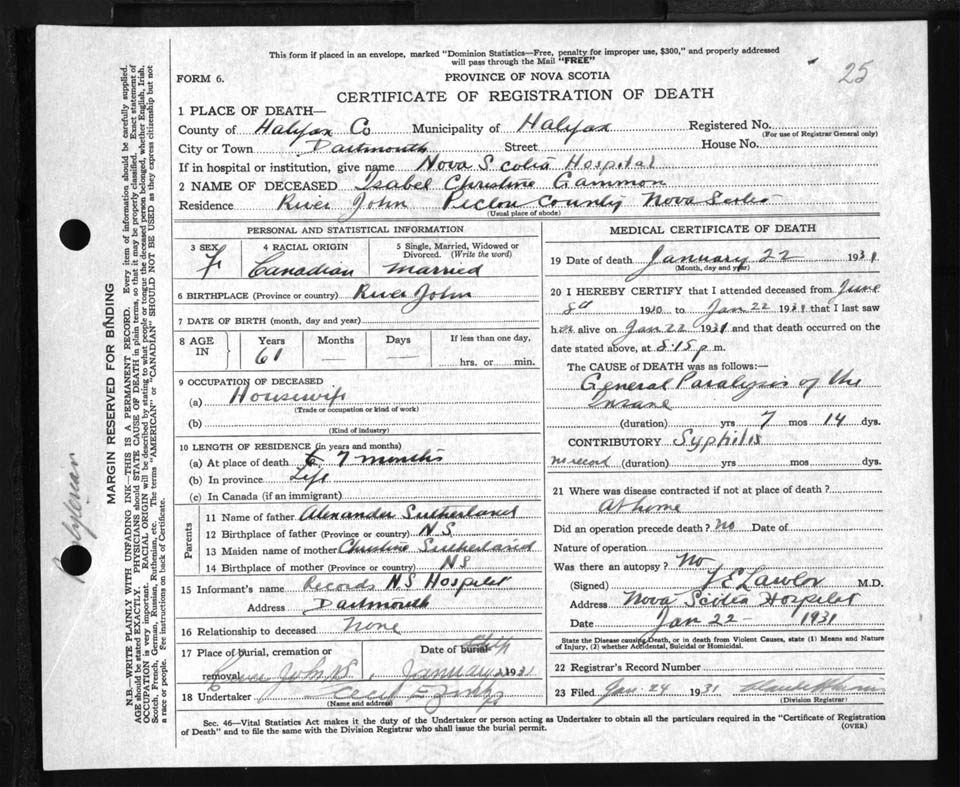 This form if placed in an envelope, marked "Dominion Statistics—Free, penalty for improper use, $300," and properly addressed
will pass through the Mail "FREE"
25
FORM 6.
PROVINCE OF NOVA SCOTIA
CERTIFICATE OF REGISTRATION OF DEATH
1 PLACE OF DEATH—
County of Halifax Co Municipality of Halifax Registered No.
(For use of Registrar General only)
City or Town Dartmouth Street House No.
If in hospital or institution, give name Nova Scotia Hospital
2 NAME OF DECEASED Isabel Christine Gammon
Residence River John Pictou County Nova Scotia
(Usual place of abode)
PERSONAL AND STATISTICAL INFORMATION
3 SEX F
4 RACIAL ORIGIN Canadian
5 Single, Married, Widowed or
Divorced. (Write the word)
Married
6 BIRTHPLACE (Province or country) River John
7 DATE OF BIRTH (month, day and year)
8 AGE IN
Years Months Days If less than one day,
61 — — hrs. or min.
9 OCCUPATION OF DECEASED
(a) Housewife
(Trade or occupation or kind of work)
(b)
(Kind of industry)
10 LENGTH OF RESIDENCE (in years and months)
(a) At place of death 7 months
(b) In province Life
(c) In Canada (if an immigrant)
Parents
11 Name of father Alexander Sutherland
12 Birthplace of father (Province or country) N.S
13 Maiden name of mother Christine Sutherland
14 Birthplace of mother (Province or country) NS
15 Informant's name Records N.S Hospital
Address Dartmouth
16 Relationship to deceased None
17 Place of burial, cremation or Date of burial
removal January 1931
18 Undertaker
(Name and address)
MEDICAL CERTIFICATE OF DEATH
19 Date of death January 22 1931
(Month, day and year)
20 I HEREBY CERTIFY that I attended deceased from June
8d 1930 to Jan 22 1931 that I last saw
her alive on Jan 22 1931 and that death occurred on
date stated above, at 8.15 p.m.
The CAUSE OF DEATH was as follows:—
General Paralysis of the
Insane
(duration) yrs 7 mos 14 dys.
CONTRIBUTORY Syphilis
no record (duration) yrs mos dys.
21 Where was disease contracted if not at place of death?
At home
Did an operation precede death? No Date of
Nature of operation
Was there an autopsy? No
(Signed) F E Lawlor M.D.
Address Nova Scotia Hospital
Date Jan 22 — 1931
State the Disease causing Death, or in death from Violent Causes, state (1) Means and Nature
of Injury, (2) whether Accidental, Suicidal or Homicidal.
22 Registrar's Record Number
23 Filed Jan 24 1931
(Division Registrar)
Sec. 46—Vital Statistics Act makes it the duty of the Undertaker or person acting as Undertaker to obtain all the particulars required in the "Certificate of Registration
of Death" and to file the same with the Division Registrar who shall issue the burial permit.
(OVER)
MARGIN RESERVED FOR BINDING
N.B.—WRITE PLAINLY WITH UNFADING INK—THIS IS A PERMANENT RECORD. Every item of information should be carefully supplied.
AGE should be stated EXACTLY. PHYSICIANS should STATE CAUSE OF DEATH in plain terms, so that it may be properly classified. Exact statement of
OCCUPATION is very important. RACIAL ORIGIN will be described by stating to what people or tongue the deceased person belonged, whether English, Irish,
Scotch, French, German, Russian, Ruthenian, etc. The terms "AMERICAN" or "CANADIAN" SHOULD NOT BE USED as they express citizenship but not
a race or people. Fee instructions on back of Certificate.